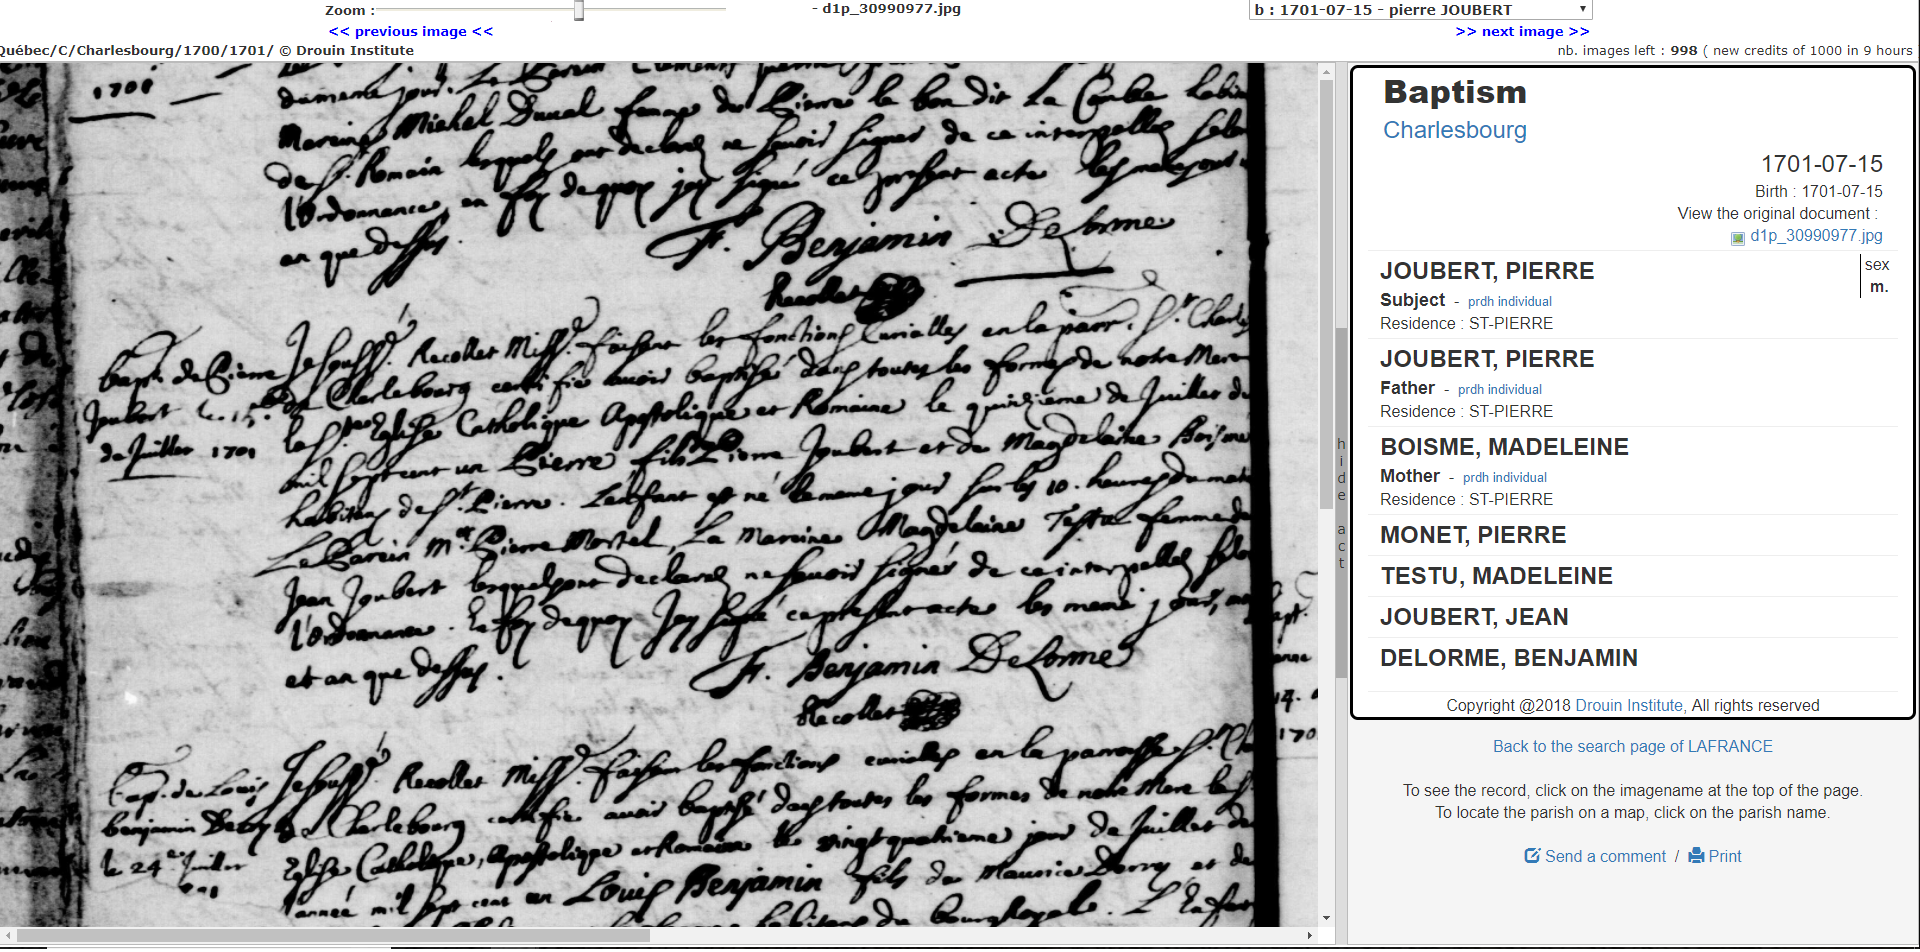 Zoom :
- d1p_30990977.jpg
b : 1701-07-15 - pierre JOUBERT
<< previous image <<
>> next image >>
Québec/C/Charlesbourg/1700/1701/ © Drouin Institute
nb. images left : 998 ( new credits of 1000 in 9 hours
1701
du mesme jour. Le Parein
Mareine Michel Duval femme de Pierre le bon dit La Combe
de St. Romain lesquels ont declarez ne scavoir signer de ce interpellez
l'Ordonnance, en foy de quoy jay signé ce present acte les mesme jour
an que dessus.
F. Benjamin Delorme
Recollet
bapt. de Pierre
Joubert le 15e
de Juillet 1701
Je soussé. Recollet Miss. faisant les fonctions Curialles en la parr. St. Charles
de Charlebourg certifie avoir baptisé dans toutes les formes de notre Mere
la Ste Eglise Catholique Apostolique et Romaine le quinzieme de Juillet de
mil sept cent un Pierre fils Pierre Joubert et de Magdelaine Boisme
habitans de St. Pierre. L'enfant est né le meme jour sur les 10. heures du matin
Le Parein Me. Pierre La Mareine Magdelaine Testu femme de
Jean Joubert lesquels ont declarez ne scavoir signer de ce interpellez
l'Ordonnance. En foy de quoy Jay signé ce present acte les meme jour,
et an que dessus.
F. Benjamin DeLorme
Recollet
Bap. de Louis
benjamin
le 24e Juillet
Je soussé. Recollet Miss. faisant les fonctions curialles en la parroisse St.
de Charlebourg certifie avoir baptisé dans toutes les formes de notre Mere la Ste
Eglise Catholique, apostolique et Romaine le vingt quatrieme jour de Juillet de
l'année mil sept cent un Louis Benjamin fils de Maurice Derry et de
du bourg Royale. L'Enfant
hide act
Baptism
Charlesbourg
1701-07-15
Birth : 1701-07-15
View the original document :
d1p_30990977.jpg
JOUBERT, PIERRE
sex
Subject - prdh individual
m.
Residence : ST-PIERRE
JOUBERT, PIERRE
Father - prdh individual
Residence : ST-PIERRE
BOISME, MADELEINE
Mother - prdh individual
Residence : ST-PIERRE
MONET, PIERRE
TESTU, MADELEINE
JOUBERT, JEAN
DELORME, BENJAMIN
Copyright @2018 Drouin Institute, All rights reserved
Back to the search page of LAFRANCE
To see the record, click on the imagename at the top of the page.
To locate the parish on a map, click on the parish name.
Send a comment / Print